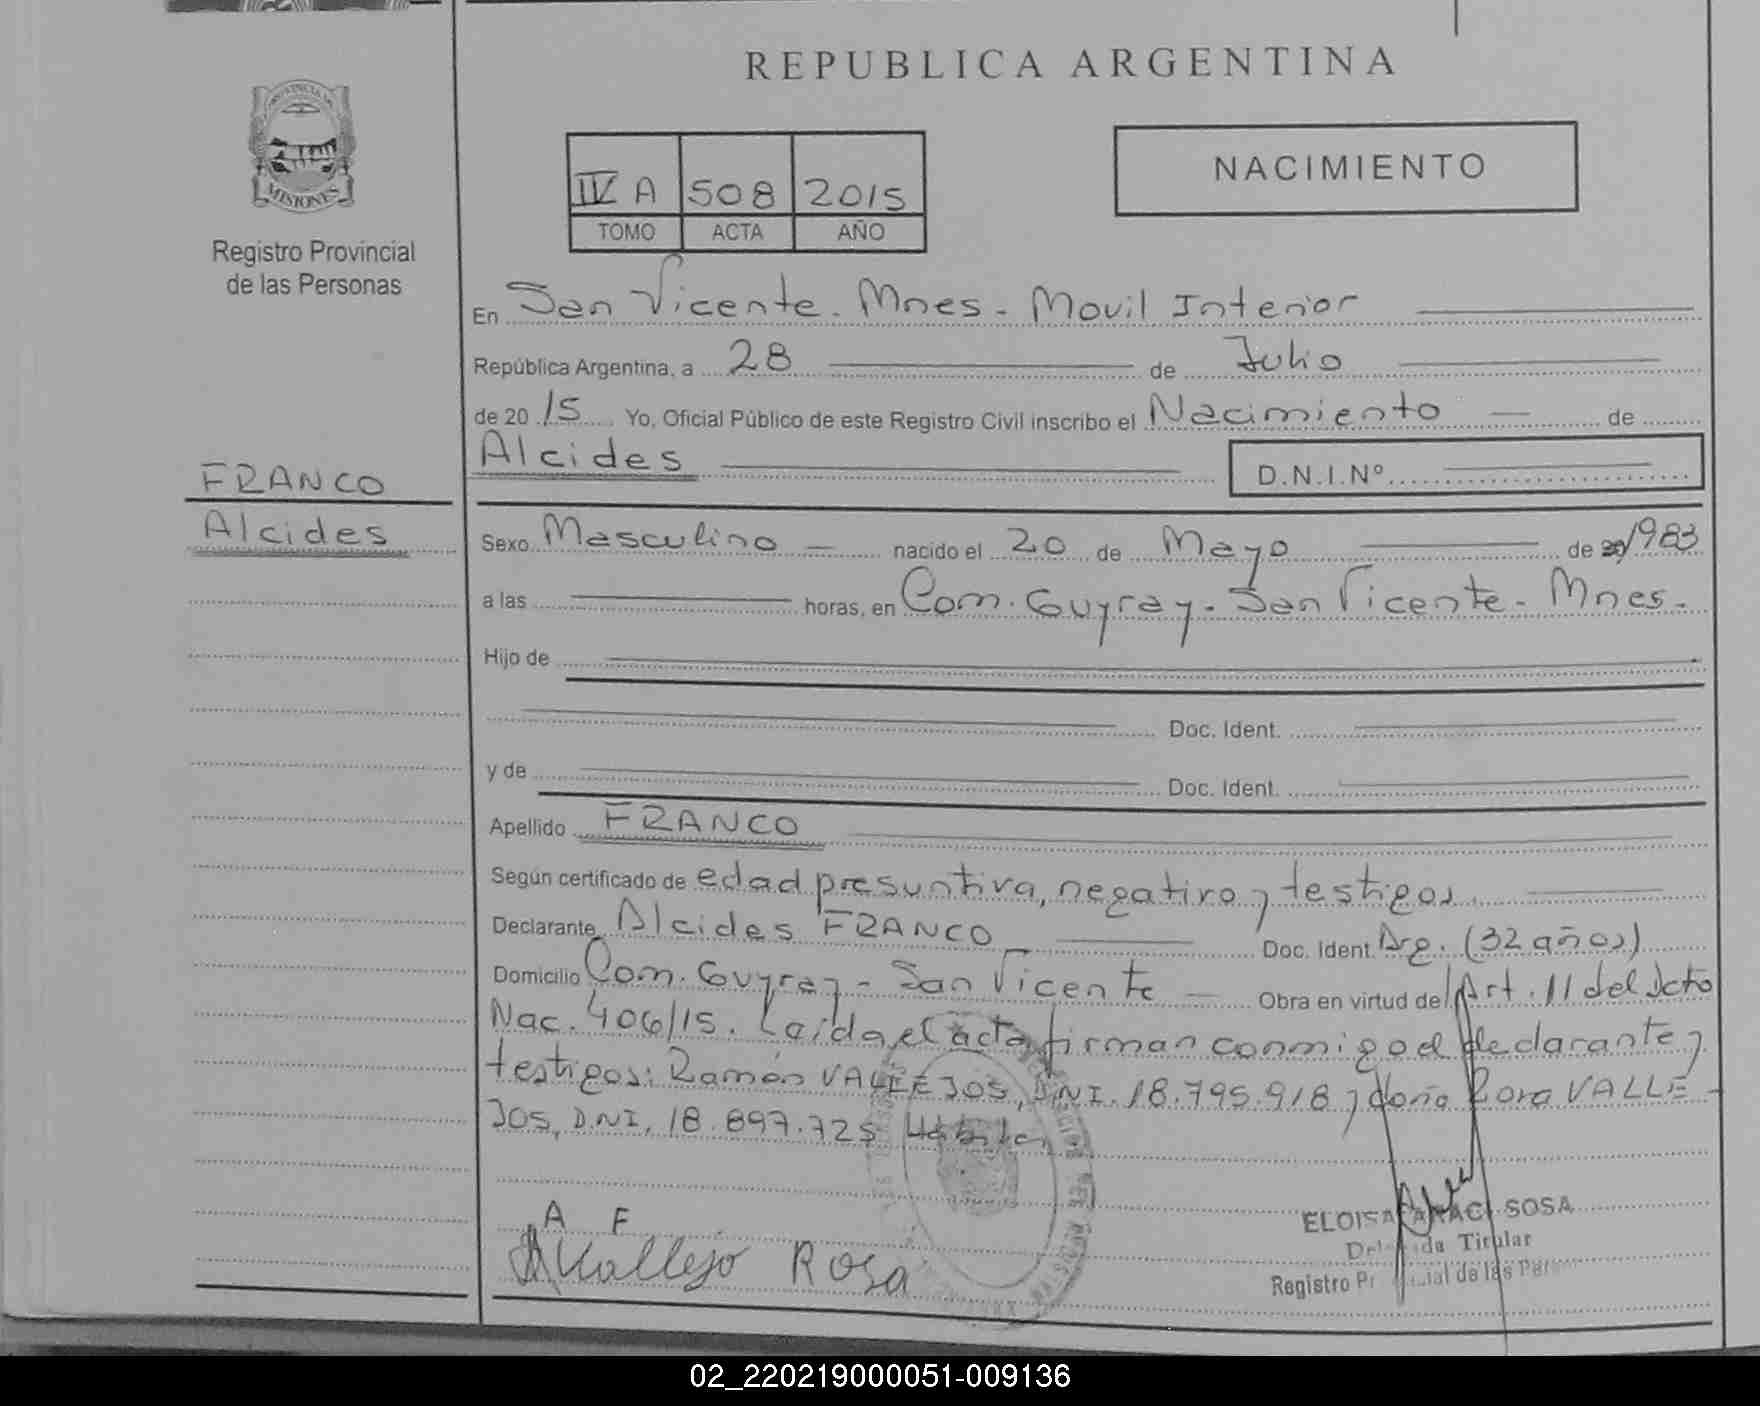 REPUBLICA ARGENTINA
PROVINCIA DE
MISIONES
Registro Provincial
de las Personas
NACIMIENTO
IV A 508 2015
TOMO ACTA AÑO
En San Vicente. Mnes - Movil Interior
República Argentina, a 28 de Julio
de 20 15 Yo, Oficial Público de este Registro Civil inscribo el Nacimiento de
Alcides D.N.I.Nº
FRANCO
Alcides
Sexo Masculino nacido el 20 de Mayo de 1983
a las horas, en Com. Guyray - San Vicente - Mnes.
Hijo de
Doc. Ident.
y de Doc. Ident.
Apellido FRANCO
Según certificado de edad presuntiva, negativo y testigos.
Declarante Alcides FRANCO Doc. Ident. Arg. (32 años)
Domicilio Com. Guyray - San Vicente Obra en virtud del Art. 11 del Dcto
Nac. 406/15. Leída el acta firman conmigo el declarante y
testigos: Ramón VALLEJOS, DNI. 18.795.918 y doña Rosa VALLE-
JOS, DNI, 18.897.725
A F
Vallejo Rosa
ELOISA SOSA
Titular
Registro
02_220219000051-009136